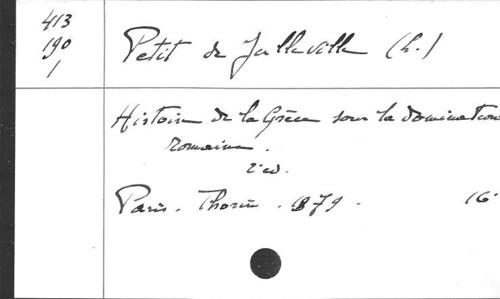 413
190
1
Petit de Julleville (L.)
Histoire de la Grèce sous la domination
romaine.
2e éd.
Paris. Thorin. 1879. 16°